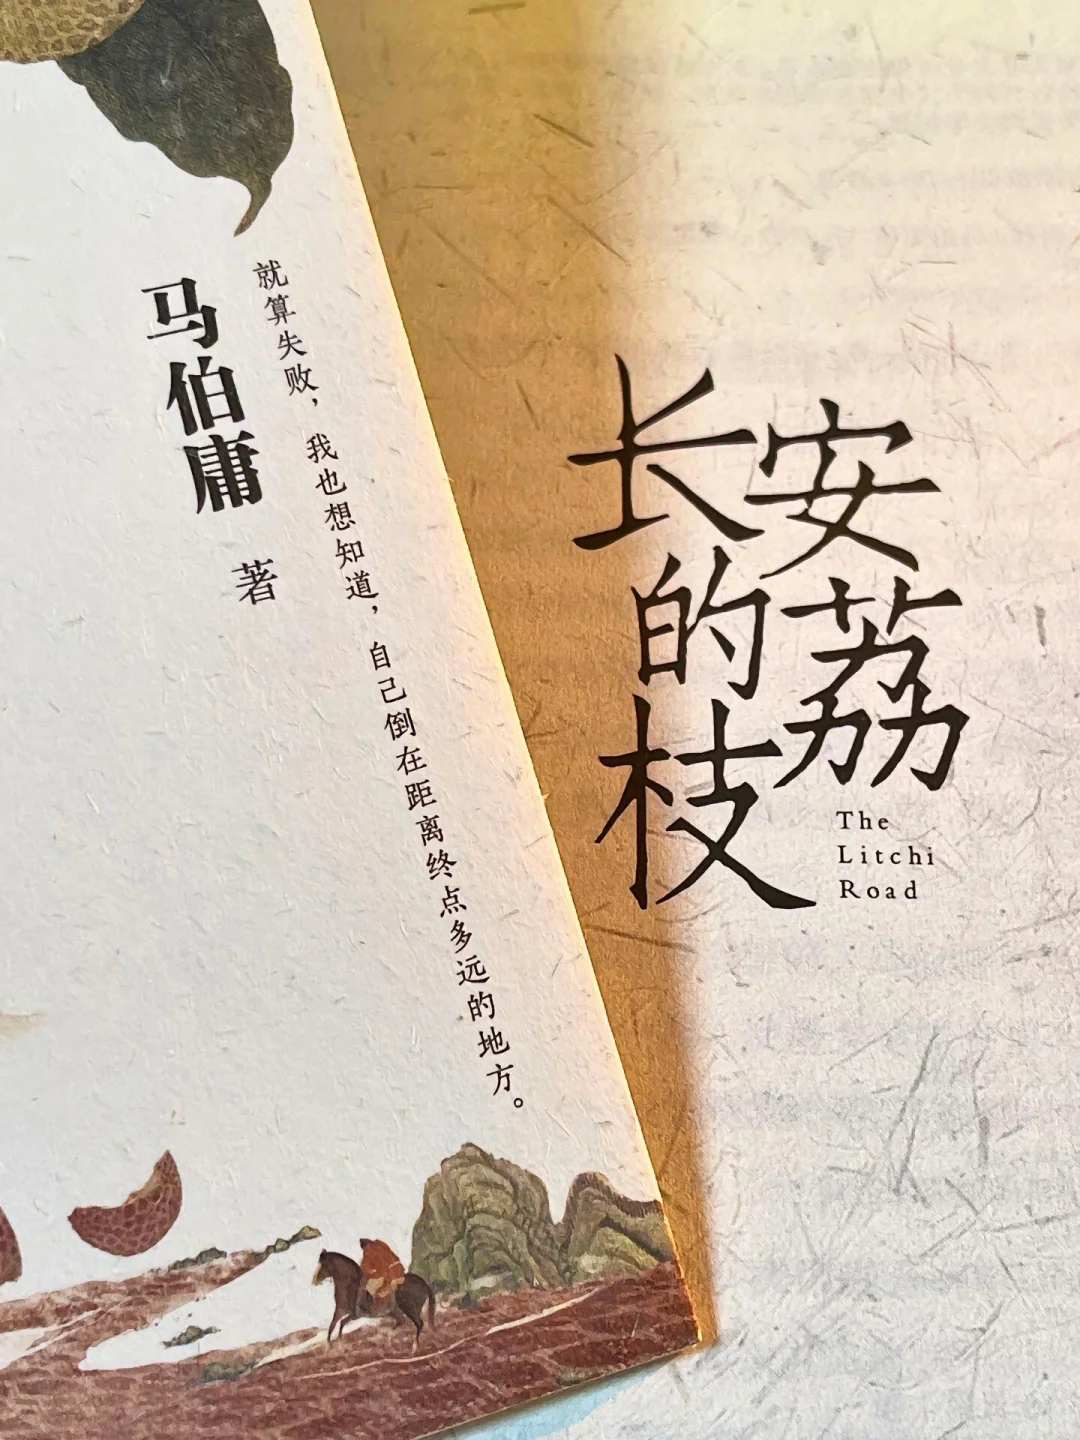 马伯庸 著
就算失败，我也想知道，自己倒在距离终点多远的地方。
长安
的荔
枝
The
Litchi
Road